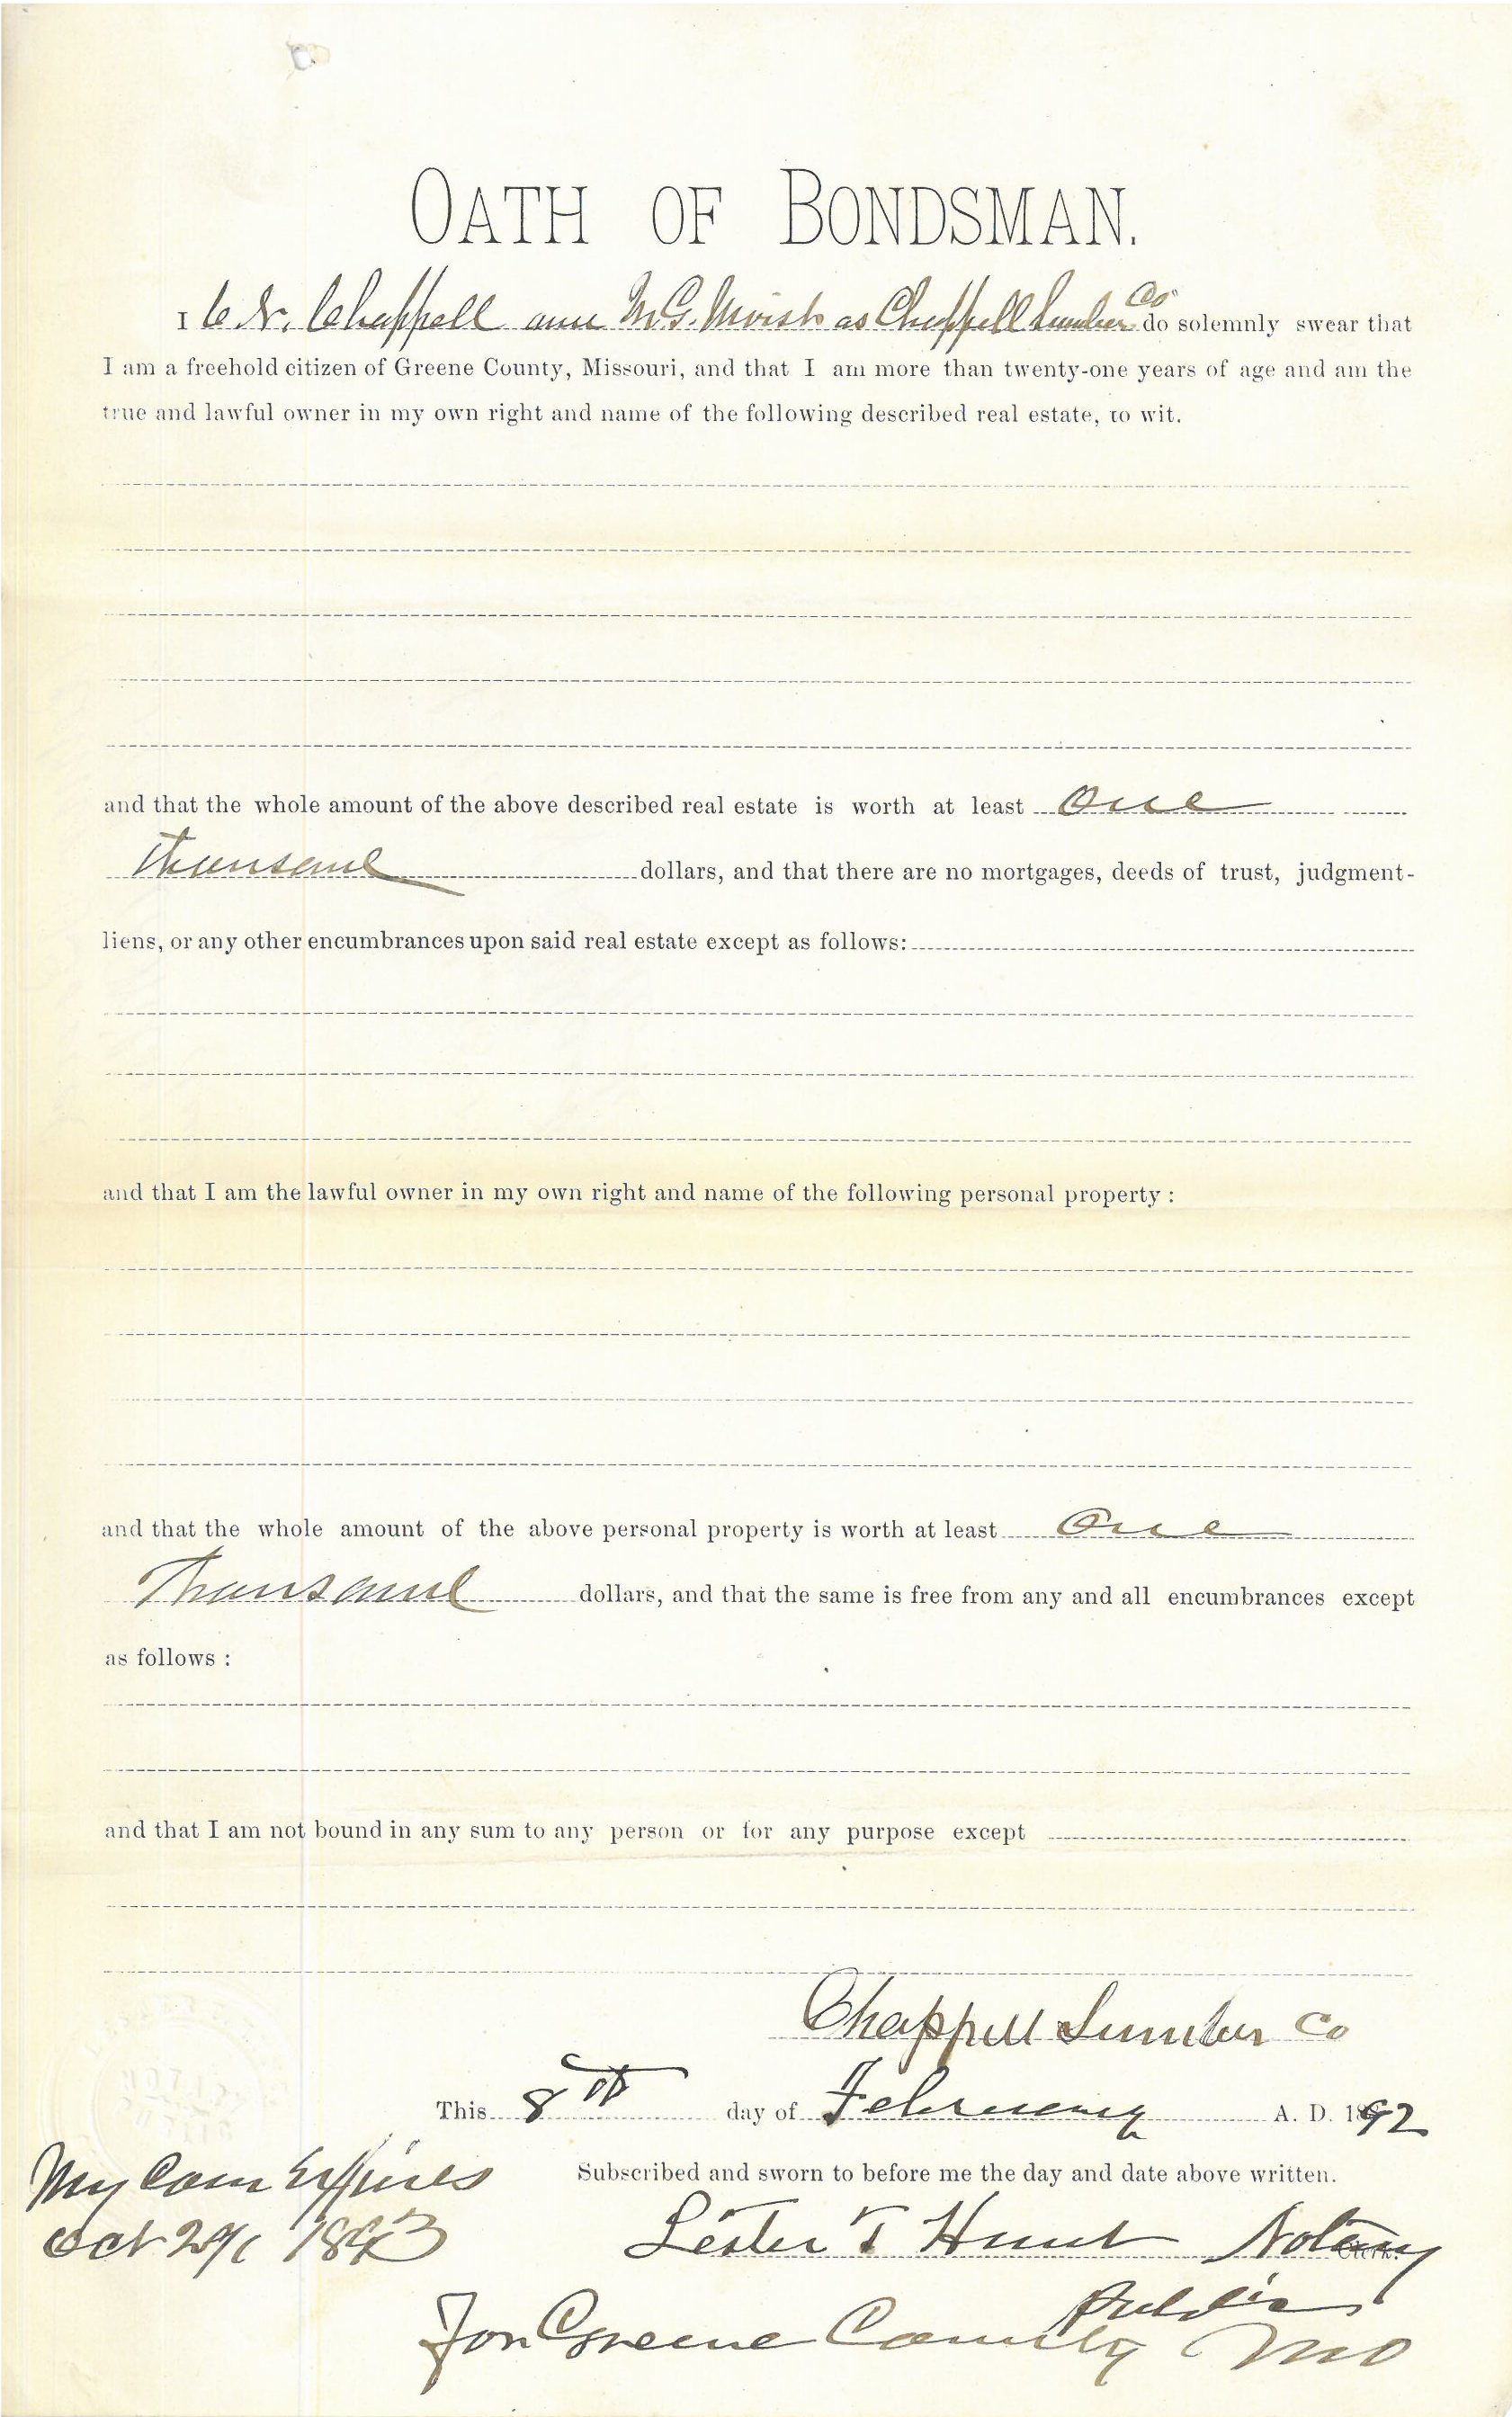 OATH OF BONDSMAN.
I Chappell and M.G. as Chappell Lumber Co do solemnly swear that
I am a freehold citizen of Greene County, Missouri, and that I am more than twenty-one years of age and am the
true and lawful owner in my own right and name of the following described real estate, to wit.
and that the whole amount of the above described real estate is worth at least One
Thousand dollars, and that there are no mortgages, deeds of trust, judgment-
liens, or any other encumbrances upon said real estate except as follows:
and that I am the lawful owner in my own right and name of the following personal property :
and that the whole amount of the above personal property is worth at least One
Thousand dollars, and that the same is free from any and all encumbrances except
as follows :
and that I am not bound in any sum to any person or for any purpose except
Chappell Lumber Co
This 8th day of February A. D. 1892
Subscribed and sworn to before me the day and date above written.
My Com Expires
Oct 1893
Lester T Hunt Notary
Public
For Greene County Mo